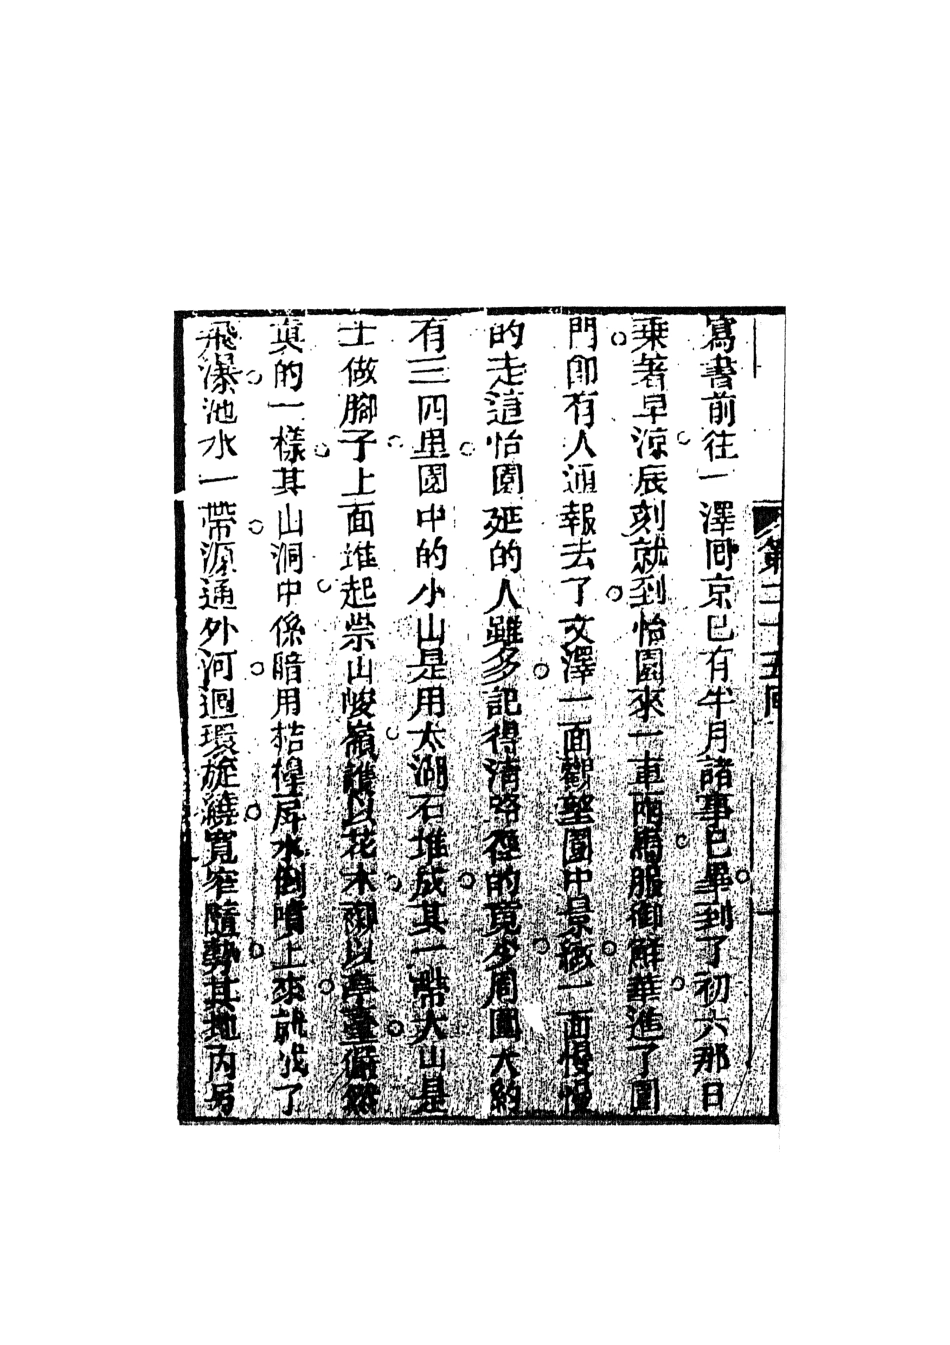 寫書前往一澤同京已有半月諸事已畢到了初六那日
乗著早涼辰刻就到怡園來一車兩馬服御鮮華進了園
門即有人通報去了文澤一面觀望園中景緻一面慢慢
的走這怡園延的人雖多記得清路徑的竟少周圍大約
有三四里園中的小山是用太湖石堆成其一帶大山是
土做腳子上面堆起崇山峻嶺護以花木襯以亭臺儼然
真的一樣其山洞中係暗用桔槔戽水倒噴上來就成了
飛瀑池水一帶源通外河迴環旋繞寬窄隨勢其地內另
第二十五回